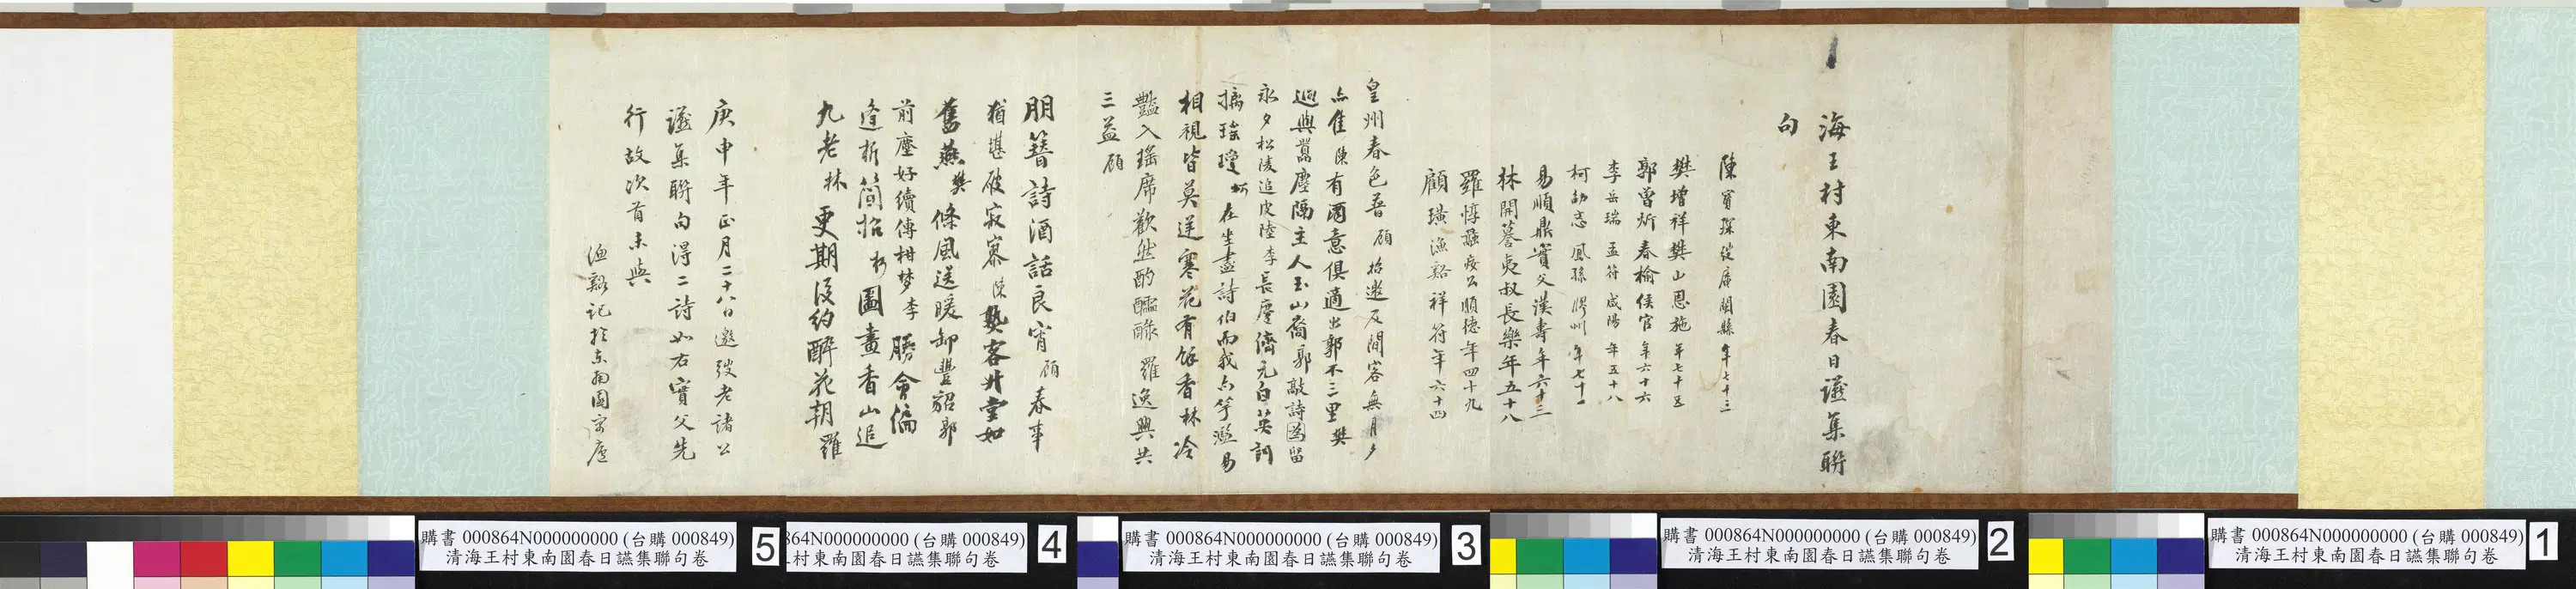 海王村東南園春日讌集聯
句
陳寶琛弢庵閩縣年七十三
樊增祥樊山恩施年七十五
郭曾炘春榆侯官年六十六
李岳瑞孟符咸陽年五十八
柯劭忞鳳孫膠州年七十一
易順鼎實父漢壽年六十三
林開謩貞叔長樂年五十八
羅惇曧癭公順德年四十九
顧璜漁谿祥符年六十四
皇州春色香顧招邀及閒客無月夕
亦佳陳有酒意俱適出郭不三里樊
迥與囂塵隔主人玉山裔郭敲詩為留
永夕松陵追皮陸李長慶儕元白英詞
摛琮瓊柯在坐盡詩伯而我亦竽濫易
相視皆莫逆寒花有餘香林冷
豔入瑤席歡然酌醽醁羅逸興共
三益顧
朋簪詩酒話良宵顧春事
猶堪破寂寥陳熟客升堂如
舊燕樊條風送暖卸豐貂郭
前塵好續傳柑夢李勝會偏
逢折簡招柯圖畫香山追
九老林更期後約醉花朝羅
庚申年正月二十八日邀弢老諸公
讌集聯句得二詩如右實父先
行故次首未與
漁谿記於東南園寄廬
購書 000864N000000000 (台購 000849)
清海王村東南園春日讌集聯句卷
1
購書 000864N000000000 (台購 000849)
清海王村東南園春日讌集聯句卷
2
購書 000864N000000000 (台購 000849)
清海王村東南園春日讌集聯句卷
3
864N000000000 (台購 000849)
王村東南園春日讌集聯句卷
4
購書 000864N000000000 (台購 000849)
清海王村東南園春日讌集聯句卷
5